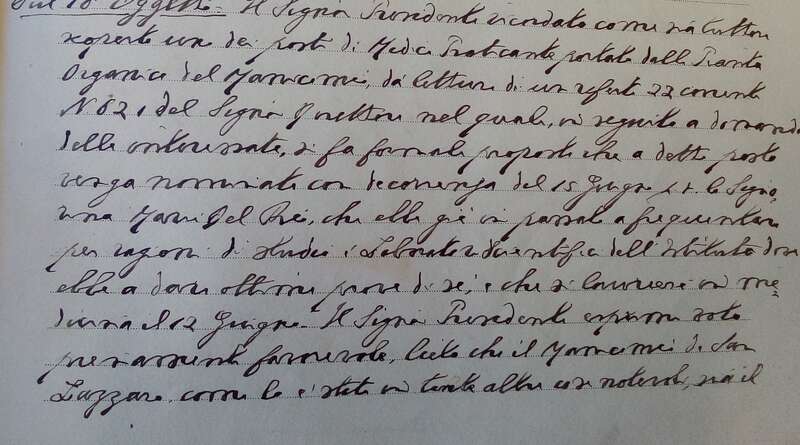 Sul 10° Oggetto - Il Signor Presidente ricordato come sia tuttora
scoperto uno dei posti di Medico Praticante portato dalla Pianta
Organica del Manicomio, dà lettura di un referto 22 corrente
N 621 del Signor Direttore nel quale, in seguito a domanda
della interessata, si fa formale proposta che a detto posto
venga nominata con decorrenza del 15 Giugno la Signo,
rina Maria Del Rio, che ebbe già in passato a frequentare
per ragioni di studio i Laboratori Scientifici dell'Istituto dove
ebbe a dare ottime prove di sè, e che si laureerà in me,
dicina il 12 Giugno. Il Signor Presidente esprime voto
pienamente favorevole, lieto che il Manicomio di San
Lazzaro, come lo è stato in tante altre cose notevoli, sia il